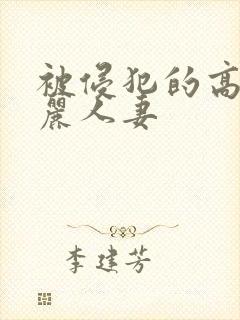 被侵犯的高
麗人妻
李建芳